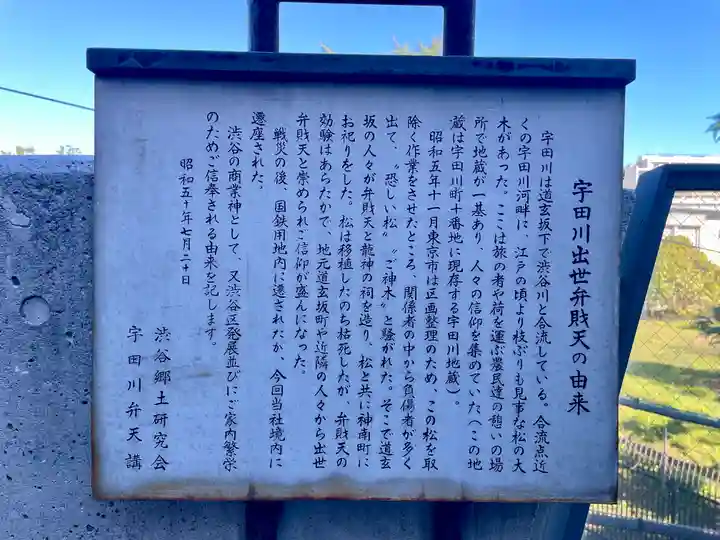 宇田川出世弁財天の由来
宇田川は道玄坂下で渋谷川と合流している。合流点近
くの宇田川河畔に、江戸の頃より枝ぶりも見事な松の大
木があった。ここは旅の者や荷を運ぶ農民達の憩いの場
所で地蔵が一基あり、人々の信仰を集めていた（この地
蔵は宇田川町十番地に現存する宇田川地蔵）。
昭和五年十一月東京市は区画整理のため、この松を取
除く作業をさせたところ、関係者の中から負傷者が多く
出て、〝恐しい松〟〝ご神木〟と騒がれた。そこで道玄
坂の人々が弁財天と龍神の祠を造り、松と共に神南町に
お祀りをした。松は移植したのち枯死したが、弁財天の
効験はあらたかで、地元道玄坂町や近隣の人々から出世
弁財天と崇められご信仰が盛んになった。
戦災の後、国鉄用地内に遷されたが、今回当社境内に
遷座された。
渋谷の商業神として、又渋谷区発展並びにご家内繁栄
のためご信奉される由来を記します。
昭和五十年七月二十日
渋谷郷土研究会
宇田川弁天講